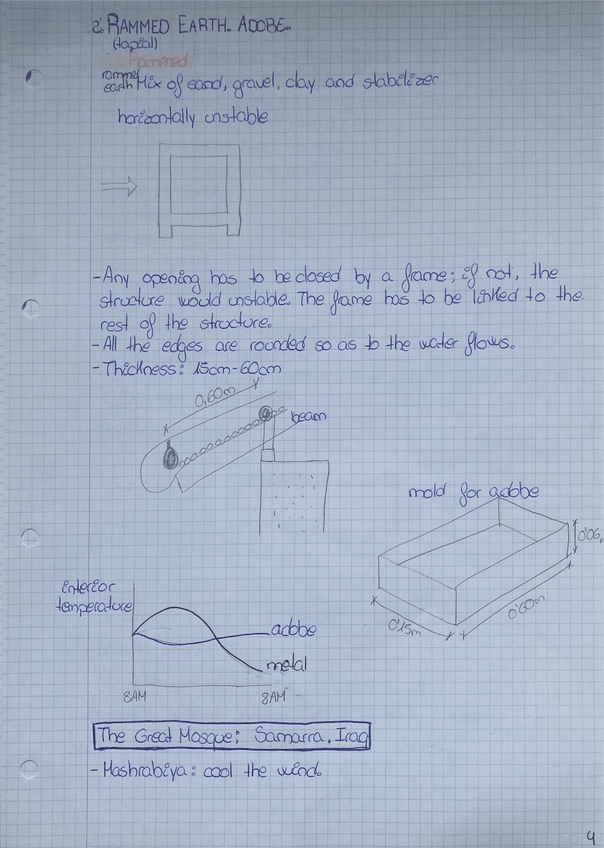 2. RAMMED EARTH. ADOBE.
(tapial)
Rammered
rammed earth Mix of sand, gravel, clay and stabilizer
horizontally unstable
- Any opening has to be closed by a frame; if not, the
structure would unstable. The frame has to be linked to the
rest of the structure.
- All the edges are rounded so as to the water flows.
- Thickness: 15cm-60cm
0,60m
beam
mold for adobe
0'06m
0'15m
0'60m
interior
temperature
adobe
metal
8AM
8AM
The Great Mosque; Samarra, Iraq
- Mashrabiya: cool the wind.
4